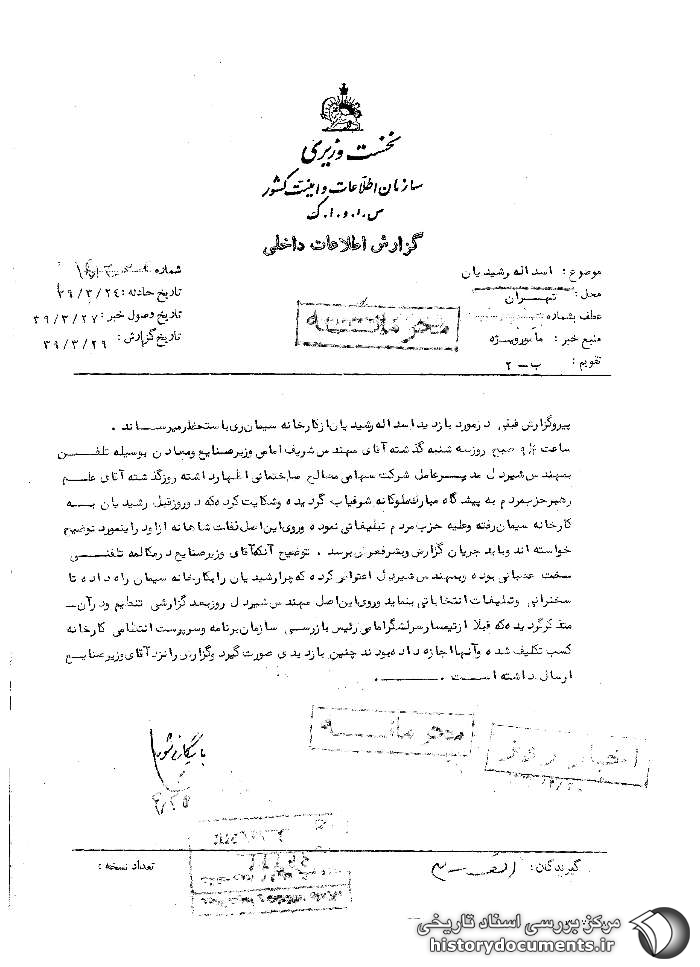 نخست وزیری
سازمان اطلاعات و امنیت کشور
س.ا.و.ا.ک
گزارش اطلاعات داخلی
موضوع : اسداله رشیدیان
شماره
محل : تهران
تاریخ حادثه : ۳۹/۳/۲۴
عطف بشماره
تاریخ وصول خبر : ۳۹/۳/۲۷
منبع خبر : مأمور ویژه
تاریخ گزارش : ۳۹/۳/۲۹
تقویم : ب-۲
محرمانه
پیرو گزارش قبلی درمورد بازدید اسداله رشیدیان از کارخانه سیمان ری باستحضار میرساند .
ساعت ۹/۵ صبح روز سه شنبه گذشته آقای مهندس شریف امامی وزیر صنایع و معادن بوسیله تلفن
بمهندس شیردل مدیرعامل شرکت سهامی مصالح ساختمانی اظهار داشته روز گذشته آقای علم
رهبر حزب مردم به پیشگاه مبارک ملوکانه شرفیاب گردیده و شکایت کرده که دو روز قبل رشیدیان به
کارخانه سیمان رفته و علیه حزب مردم تبلیغاتی نموده و روی این اصل اعلیحضرت شاهانه از او در اینمورد توضیح
خواسته اند و باید جریان گزارش و بشرفعرض برسد . توضیح آنکه آقای وزیر صنایع در مکالمه تلفنی
سخت عصبانی بوده و بمهندس شیردل اعتراض کرده که چرا رشیدیان را بکارخانه سیمان راه داده تا
سخنرانی و تبلیغات انتخاباتی بنماید و روی این اصل مهندس شیردل روز بعد گزارشی تنظیم و در آن
متذکر گردیده که قبلا از تیمسار سرلشگر امامی رئیس بازرسی سازمان برنامه و سرپرست انتظامی کارخانه
کسب تکلیف شده و آنها اجازه داده بودند چنین بازدیدی صورت گیرد و گزارش را نزد آقای وزیر صنایع
ارسال داشته است .
محرمانه
اخبار روز
بایگانی شود
گیرندگان :
تعداد نسخه :
مرکز بررسی اسناد تاریخی
historydocuments.ir